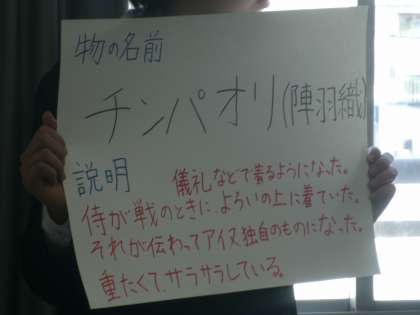 物の名前
チンパオリ(陣羽織)
説明 儀礼などで着るようになった。
侍が戦のときに、よろいの上に着ていた。
それが伝わってアイヌ独自のものになった。
重たくて、サラサラしている。